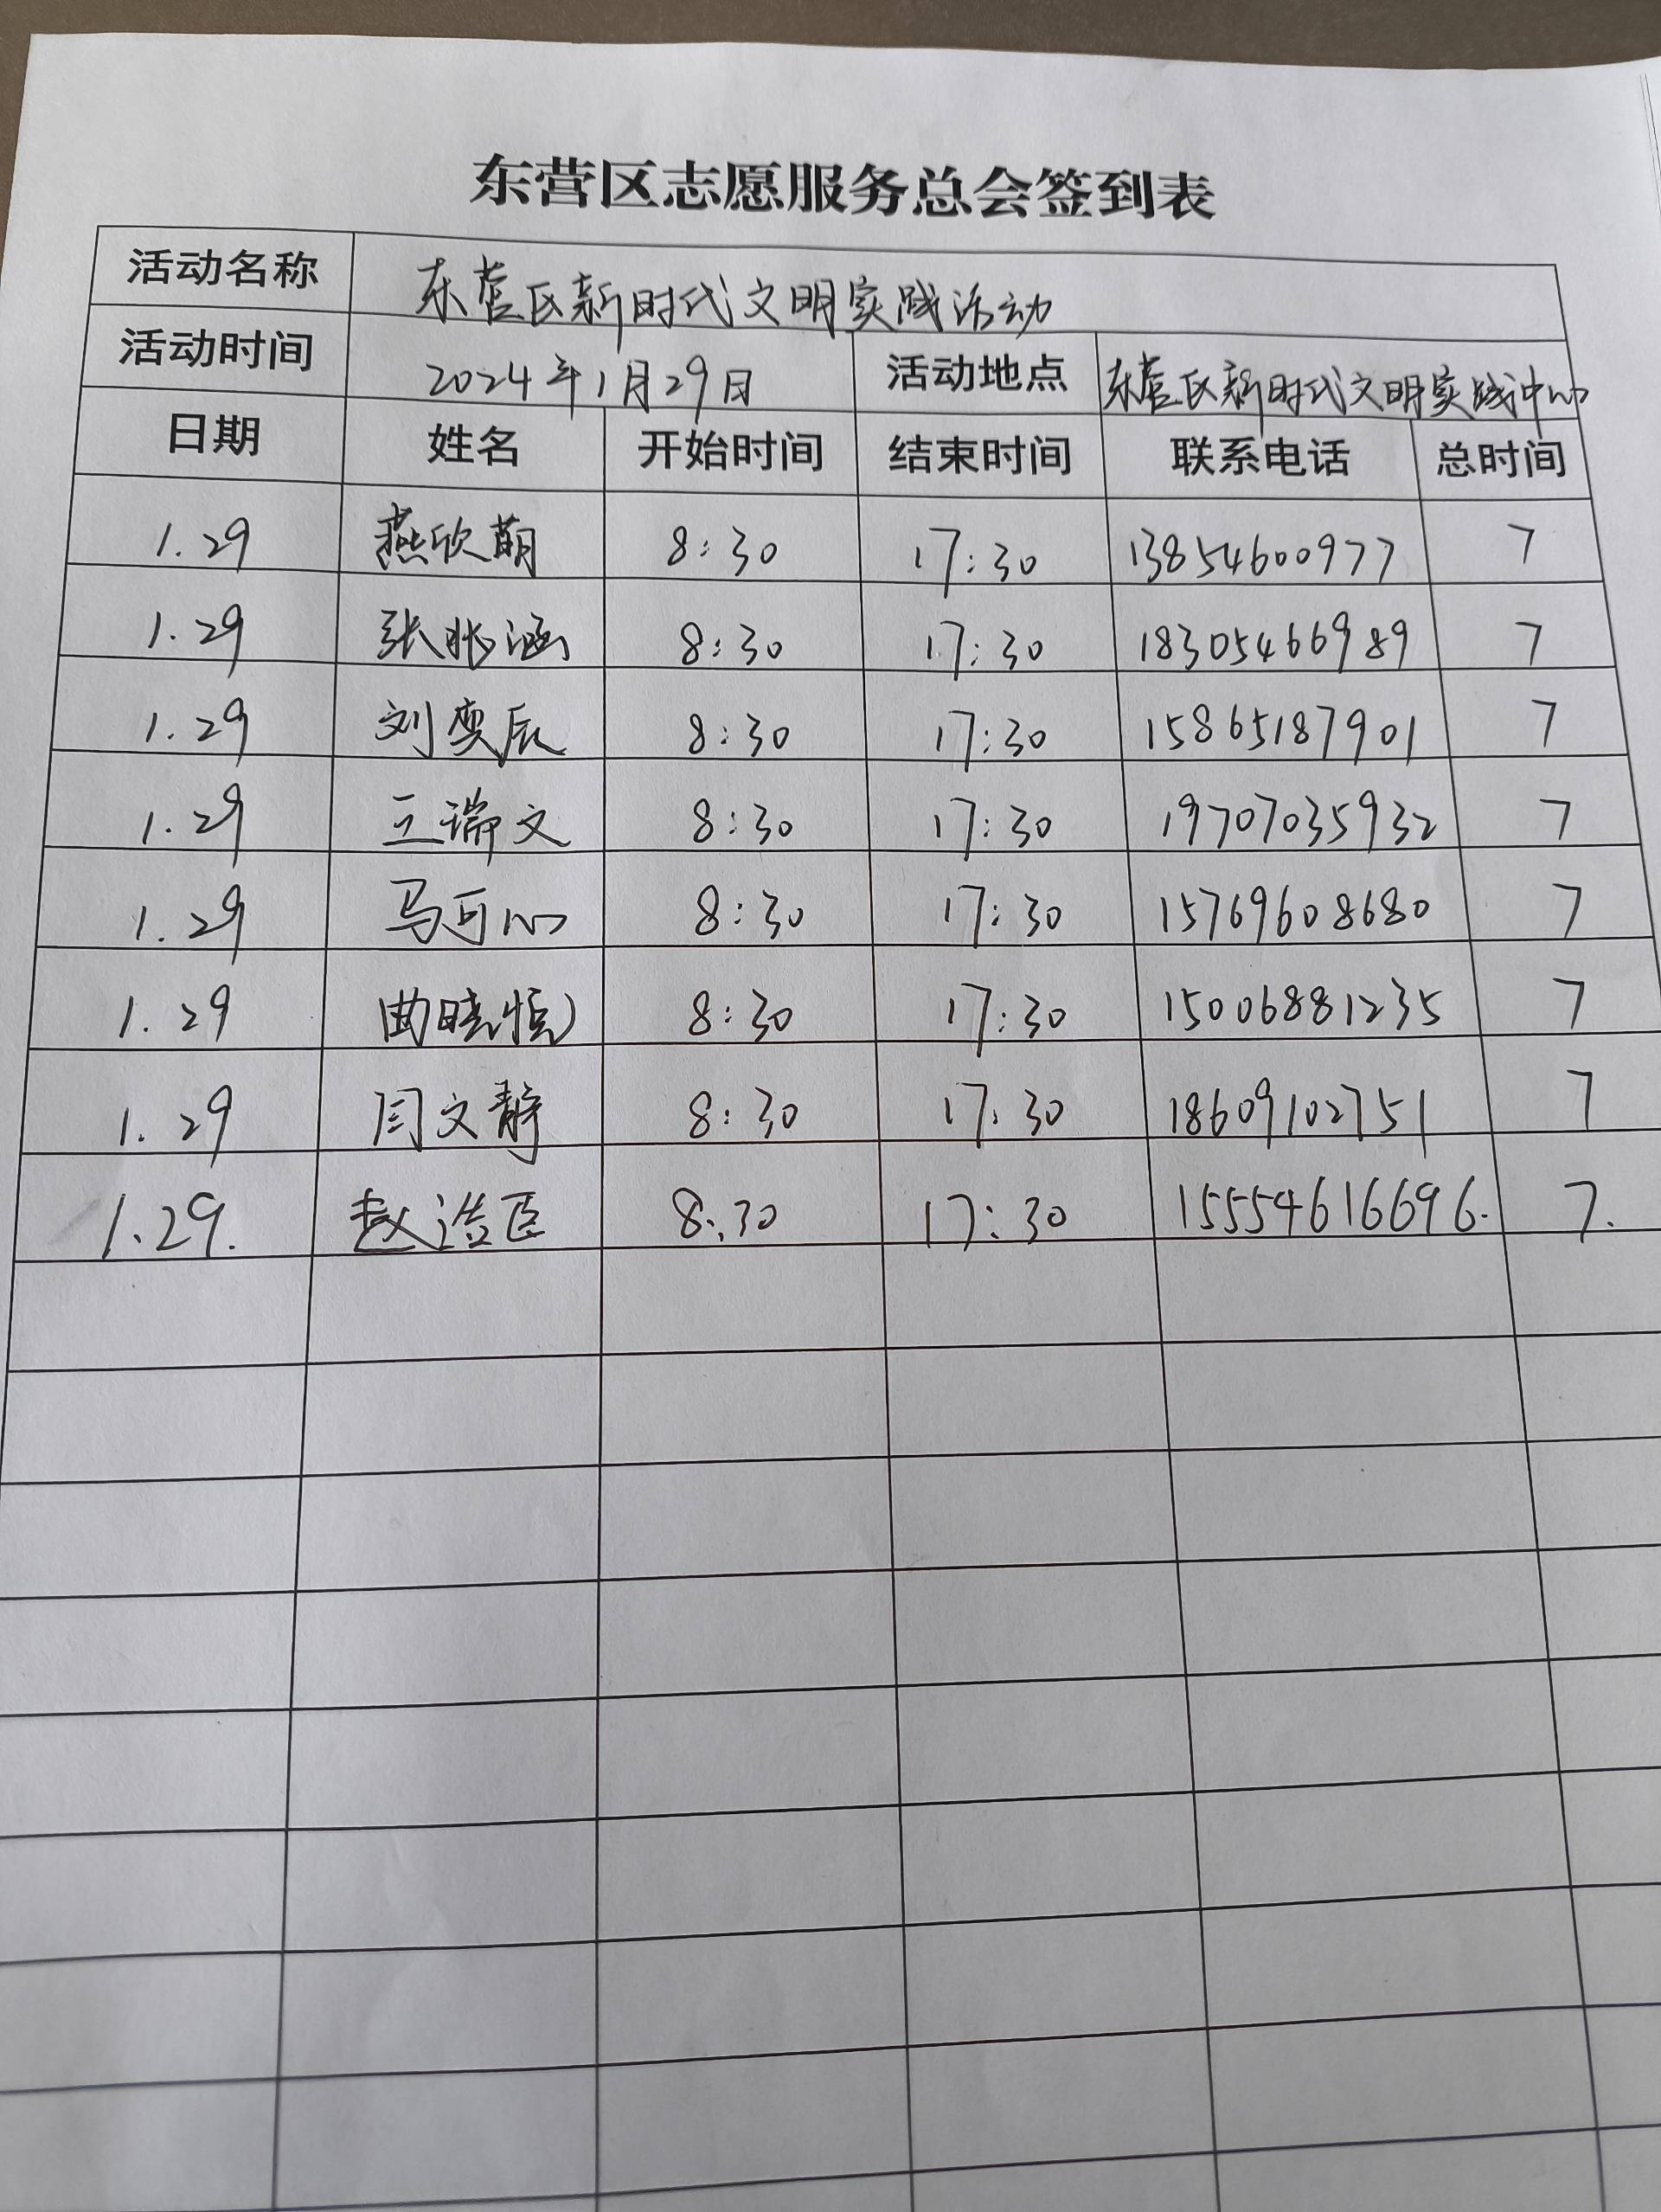 东营区志愿服务总会签到表
活动名称 东营区新时代文明实践活动
活动时间 2024年1月29日 活动地点 东营区新时代文明实践中心
日期 姓名 开始时间 结束时间 联系电话 总时间
1.29 燕欣萌 8:30 17:30 13854600977 7
1.29 张 涵 8:30 17:30 18305466989 7
1.29 刘奕辰 8:30 17:30 15865187901 7
1.29 王瑞文 8:30 17:30 19707035932 7
1.29 马可心 8:30 17:30 15769608680 7
1.29 曲晓恒 8:30 17:30 15006881235 7
1.29 闫文静 8:30 17:30 18609102751 7
1.29. 赵 8:30 17:30 15554616696. 7.